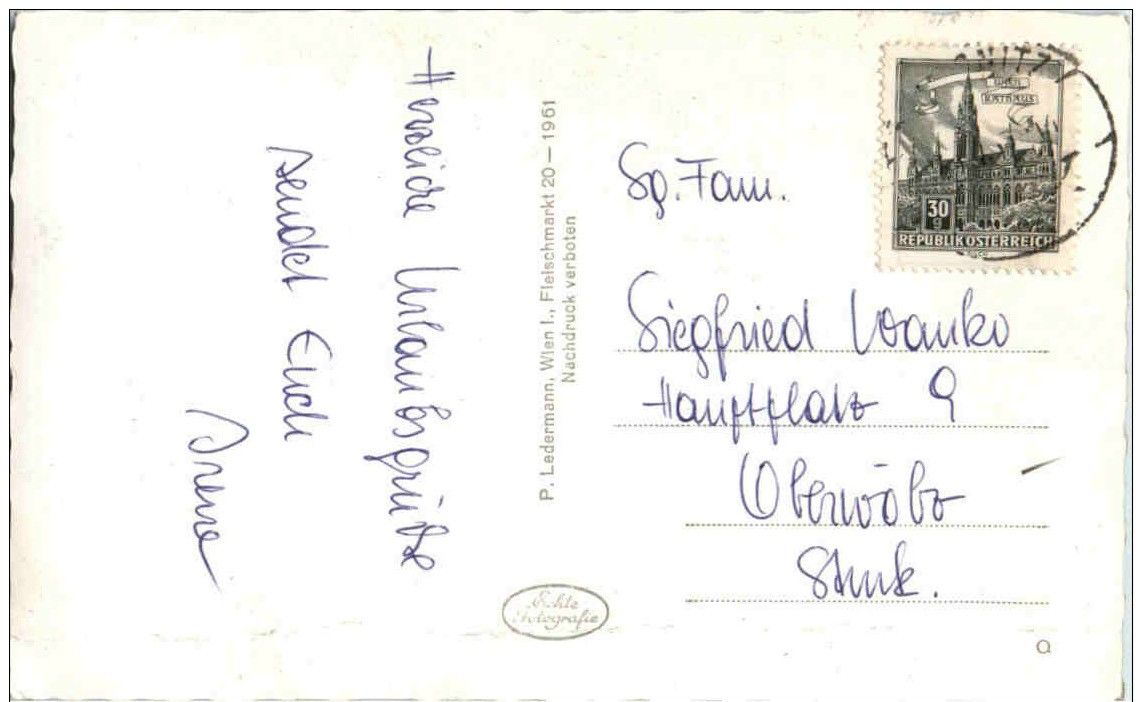 Herzliche Urlaubsgrüße
sendet Euch
Irene
P. Ledermann, Wien I., Fleischmarkt 20 — 1961
Nachdruck verboten
Echte
Fotografie
WIEN
RATHAUS
30
g
REPUBLIK ÖSTERREICH
Sg. Fam.
Siegfried Wanko
Hauptplatz 9
Oberwölz
Stmk.
Q